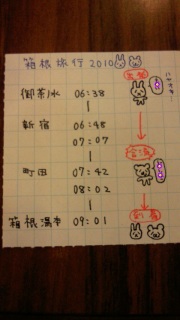 箱根旅行 2010
御茶ノ水 06:38
新宿 06:48
07:07
町田 07:42
08:02
箱根湯本 09:01